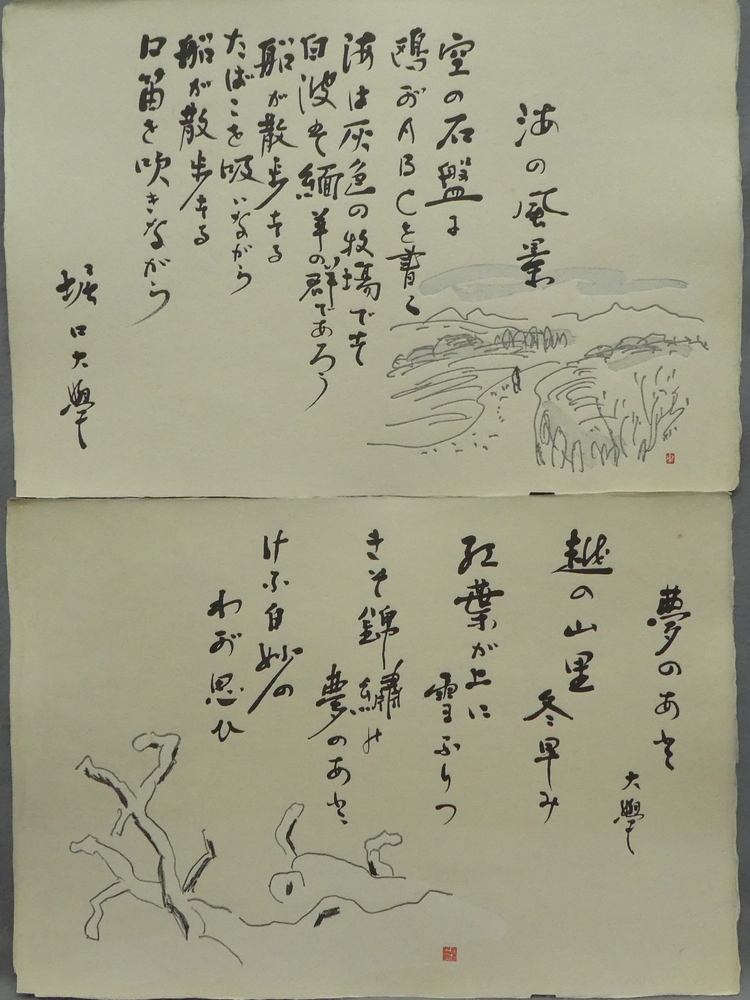 海の風景
空の石盤に
鴎がABCを書く
海は灰色の牧場です
白波は緬羊の群であろう
船が散歩する
たばこを吸いながら
船が散歩する
口笛を吹きながら
堀口大學
夢のあと
大學
越の山里
冬早み
紅葉が上に
雪ふりつ
きそ錦繍の
夢のあと
けふ白妙の
わが思ひ